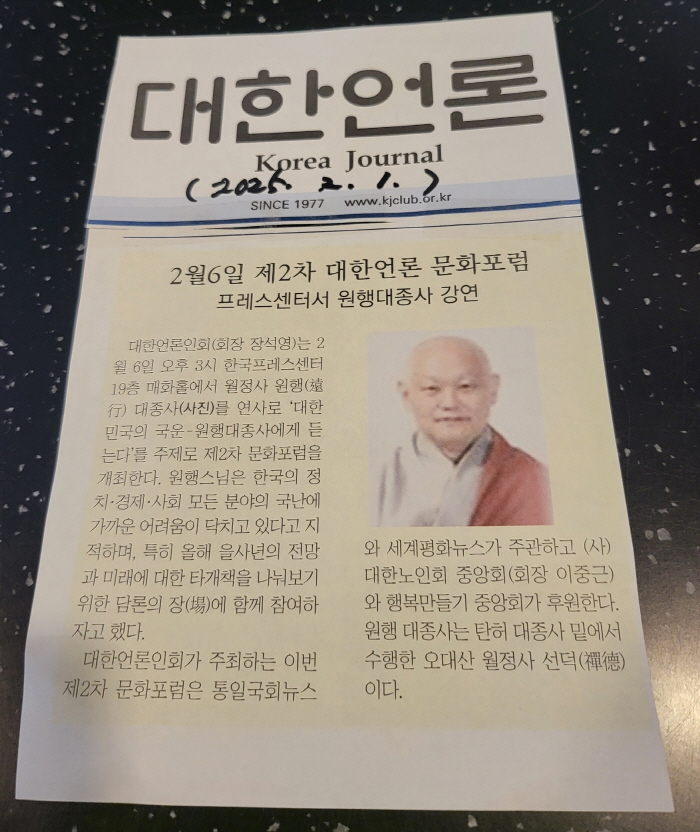 대한언론
Korea Journal
(2025. 2. 1.)
SINCE 1977 www.kjclub.or.kr
2월6일 제2차 대한언론 문화포럼
프레스센터서 원행대종사 강연
대한언론인회(회장 장석영)는 2
월 6일 오후 3시 한국프레스센터
19층 매화홀에서 월정사 원행(遠
行) 대종사(사진)를 연사로 '대한
민국의 국운-원행대종사에게 듣
는다'를 주제로 제2차 문화포럼을
개최한다. 원행스님은 한국의 정
치·경제·사회 모든 분야의 국난에
가까운 어려움이 닥치고 있다고 지
적하며, 특히 올해 을사년의 전망
과 미래에 대한 타개책을 나눠보기
위한 담론의 장(場)에 함께 참여하
자고 했다.
대한언론인회가 주최하는 이번
제2차 문화포럼은 통일국회뉴스
와 세계평화뉴스가 주관하고 (사)
대한노인회 중앙회(회장 이중근)
와 행복만들기 중앙회가 후원한다.
원행 대종사는 탄허 대종사 밑에서
수행한 오대산 월정사 선덕(禪德)
이다.